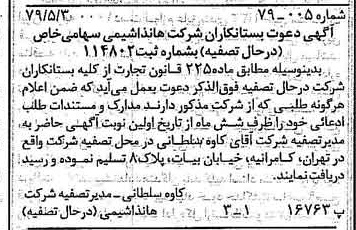 شماره ۰۰۵ــ۷۹ ۷۹/۵/۳۰۰۰۰۰
آگهی دعوت بستانکاران شرکت هانداشیمی سهامی‌خاص
(درحال تصفیه) بشماره ثبت۱۱۴۸۰۲
بدینوسیله مطابق ماده۲۲۵ قانون تجارت از کلیه بستانکاران
شرکت درحال تصفیه فوق‌الذکر دعوت بعمل می‌آید که ضمن اعلام
هرگونه طلبی که از شرکت مذکور دارند مدارک و مستندات طلب
ادعائی خود را ظرف شش ماه از تاریخ اولین نوبت آگهی حاضر به
مدیرتصفیه شرکت آقای کاوه سلطانی در محل تصفیه شرکت واقع
در تهران، کامرانیه، خیابان بیات، پلاک۸ تسلیم نموده و رسید
دریافت نمایند.
کاوه سلطانی ــ مدیرتصفیه شرکت
پ ۱۶۷۶۳ ۱ــ۳ هانداشیمی (درحال تصفیه)